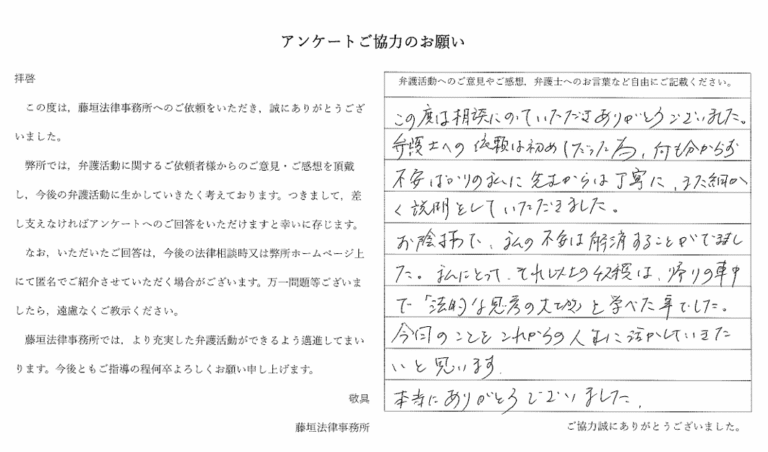 アンケートご協力のお願い
拝啓
この度は、藤垣法律事務所へのご依頼をいただき，誠にありがとうござ
いました。
弊所では，弁護活動に関するご依頼者様からのご意見・ご感想を頂戴
し，今後の弁護活動に生かしていきたく考えております。つきまして，差
し支えなければアンケートへのご回答をいただけますと幸いに存じます。
なお，いただいたご回答は，今後の法律相談時又は弊所ホームページ上
にて匿名でご紹介させていただく場合がございます。万一問題等ございま
したら，遠慮なくご教示ください。
藤垣法律事務所では，より充実した弁護活動ができるよう邁進してまい
ります。今後ともご指導の程何卒よろしくお願い申し上げます。
敬具
藤垣法律事務所
弁護活動へのご意見やご感想，弁護士へのお言葉など自由にご記載ください。
この度は相談にのっていただきありがとうございました。
弁護士への依頼は初めてだった為、何も分からず
不安ばかりの私に先生からは丁寧に、また細か
く説明をしていただきました。
お陰様で、私の不安は解消することができまし
た。私にとって、それ以上の収穫は、帰りの車中
で「法的な思考の大切さ」を学べた事でした。
今回のことをこれからの人生に活かしていきた
いと思います
本当にありがとうございました。
ご協力誠にありがとうございました。